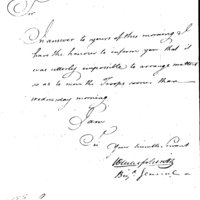 Sir
In answer to yours of this morning I
have the honour to inform you that it
was utterly impossible to arrange matters
so as to move the Troops sooner than
Wednesday morning
I am
Sir
Your humble Servant
Brig. General